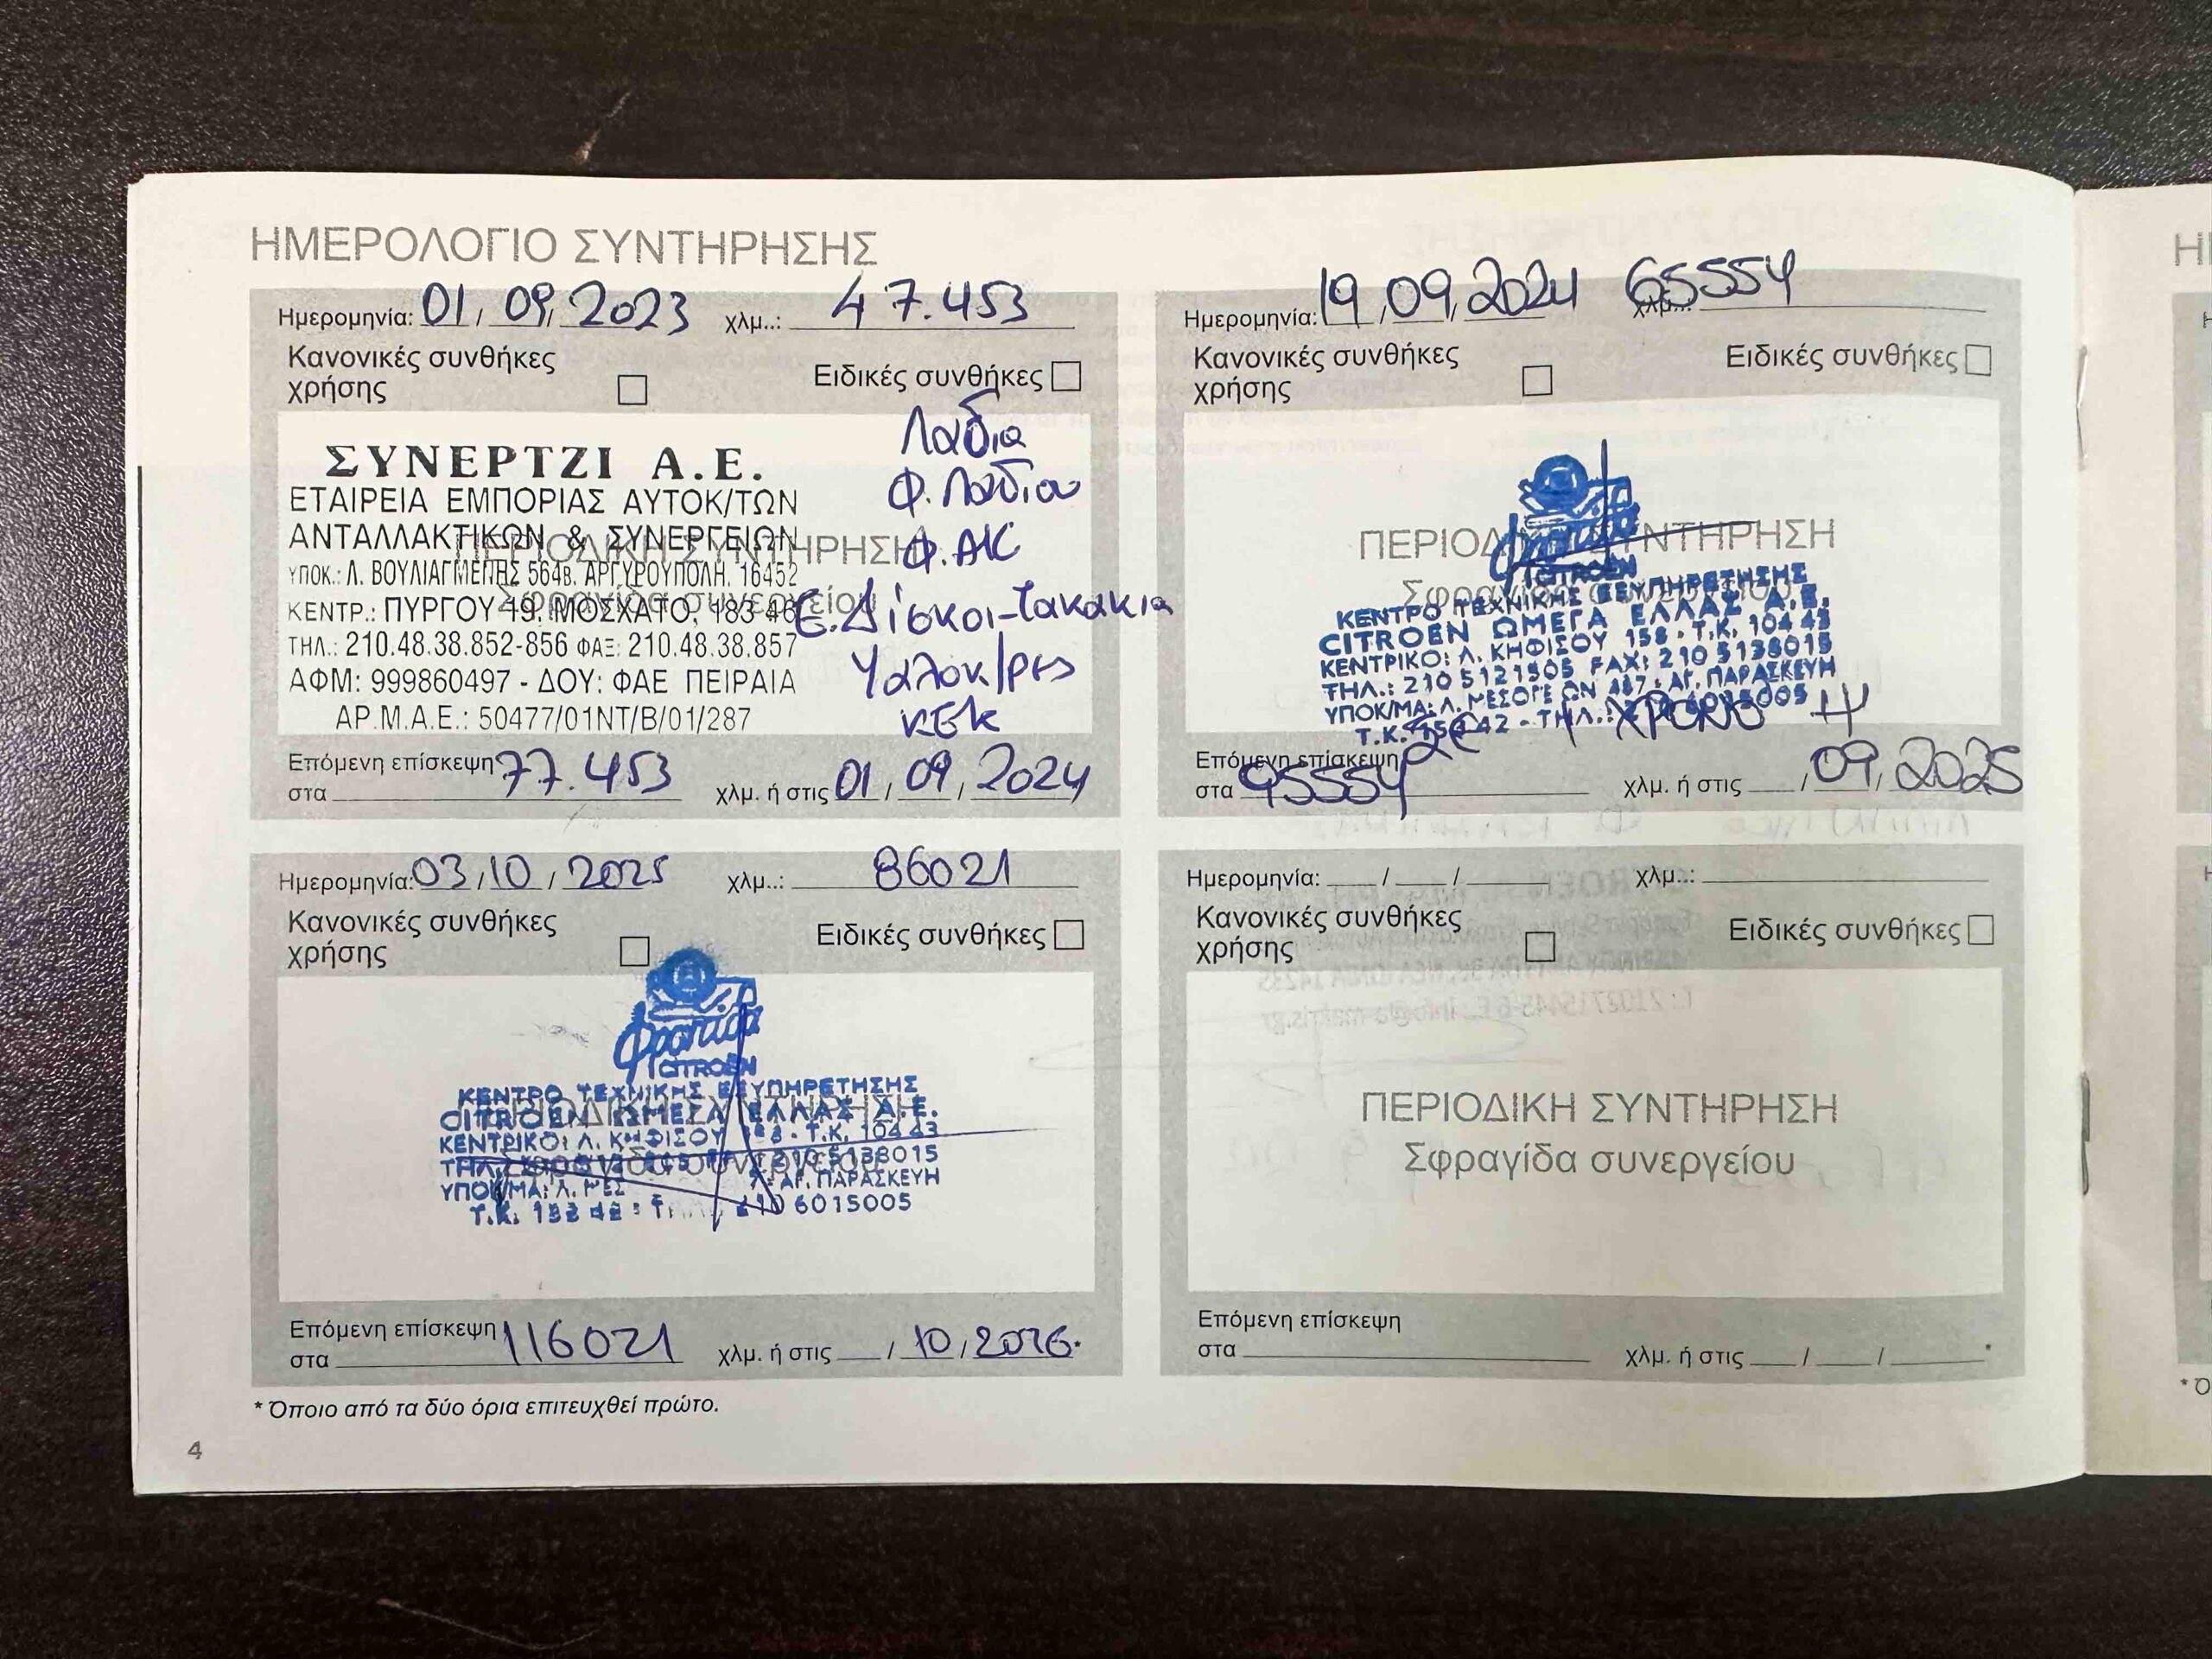 ΗΜΕΡΟΛΟΓΙΟ ΣΥΝΤΗΡΗΣΗΣ
Ημερομηνία: 01 / 09 / 2023 χλμ..: 47.453
Κανονικές συνθήκες
χρήσης
Ειδικές συνθήκες
ΣΥΝΕΡΤΖΙ Α.Ε.
ΕΤΑΙΡΕΙΑ ΕΜΠΟΡΙΑΣ ΑΥΤΟΚ/ΤΩΝ
ΑΝΤΑΛΛΑΚΤΙΚΩΝ & ΣΥΝΕΡΓΕΙΩΝ
ΠΕΡΙΟΔΙΚΗ ΣΥΝΤΗΡΗΣΗ
ΥΠΟΚ.: Λ. ΒΟΥΛΙΑΓΜΕΝΗΣ 564Β. ΑΡΓΥΡΟΥΠΟΛΗ, 16452
Σφραγίδα συνεργείου
ΚΕΝΤΡ.: ΠΥΡΓΟΥ 49, ΜΟΣΧΑΤΟ, 183 46
ΤΗΛ.: 210.48.38.852-856 ΦΑΞ: 210.48.38.857
ΑΦΜ: 999860497 - ΔΟΥ: ΦΑΕ ΠΕΙΡΑΙΑ
ΑΡ.Μ.Α.Ε.: 50477/01ΝΤ/Β/01/287
Λαδια
Φ. Λαδιου
Φ. A/C
Ε. Δίσκοι-τακακια
Υαλοκ/ρες
ΚΕΚ
Επόμενη επίσκεψη
στα 77.453 χλμ. ή στις 01 / 09 / 2024
Ημερομηνία: 19 / 09 / 2024 χλμ..: 65554
Κανονικές συνθήκες
χρήσης
Ειδικές συνθήκες
ΠΕΡΙΟΔΙΚΗ ΣΥΝΤΗΡΗΣΗ
Σφραγίδα συνεργείου
Φροντίδα
CITROËN
ΚΕΝΤΡΟ ΤΕΧΝΙΚΗΣ ΕΞΥΠΗΡΕΤΗΣΗΣ
CITROEN ΩΜΕΓΑ ΕΛΛΑΣ Α.Ε.
ΚΕΝΤΡΙΚΟ: Λ. ΚΗΦΙΣΟΥ 158 - Τ.Κ. 104 43
ΤΗΛ.: 210 5121505 FAX: 210 5138015
ΥΠΟΚ/ΜΑ: Λ. ΜΕΣΟΓΕΙΩΝ 417 - ΑΓ. ΠΑΡΑΣΚΕΥΗ
ΧΡΟΝΟ
Επόμενη επίσκεψη
στα 95554 χλμ. ή στις / 09 / 2025
Ημερομηνία: 03 / 10 / 2025 χλμ..: 86021
Κανονικές συνθήκες
χρήσης
Ειδικές συνθήκες
Φροντίδα
CITROËN
ΚΕΝΤΡΟ ΤΕΧΝΙΚΗΣ ΕΞΥΠΗΡΕΤΗΣΗΣ
CITROEN ΩΜΕΓΑ ΕΛΛΑΣ Α.Ε.
ΚΕΝΤΡΙΚΟ: Λ. ΚΗΦΙΣΟΥ 158 - Τ.Κ. 104 43
210 5138015
ΥΠΟΚ/ΜΑ: Λ. ΜΕΣ ΑΓ. ΠΑΡΑΣΚΕΥΗ
210 6015005
Επόμενη επίσκεψη
στα 116021 χλμ. ή στις / 10 / 2026.
Ημερομηνία: / / χλμ..:
Κανονικές συνθήκες
χρήσης
Ειδικές συνθήκες
ΠΕΡΙΟΔΙΚΗ ΣΥΝΤΗΡΗΣΗ
Σφραγίδα συνεργείου
Επόμενη επίσκεψη
στα χλμ. ή στις / / *
* Όποιο από τα δύο όρια επιτευχθεί πρώτο.
4